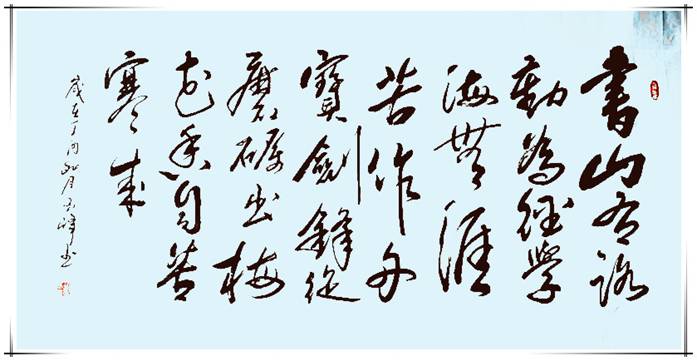 書山有路
勤為徑學
海無涯
苦作舟
寶劍鋒從
磨礪出梅
花香自苦
寒來
歲在丁酉如月峰书